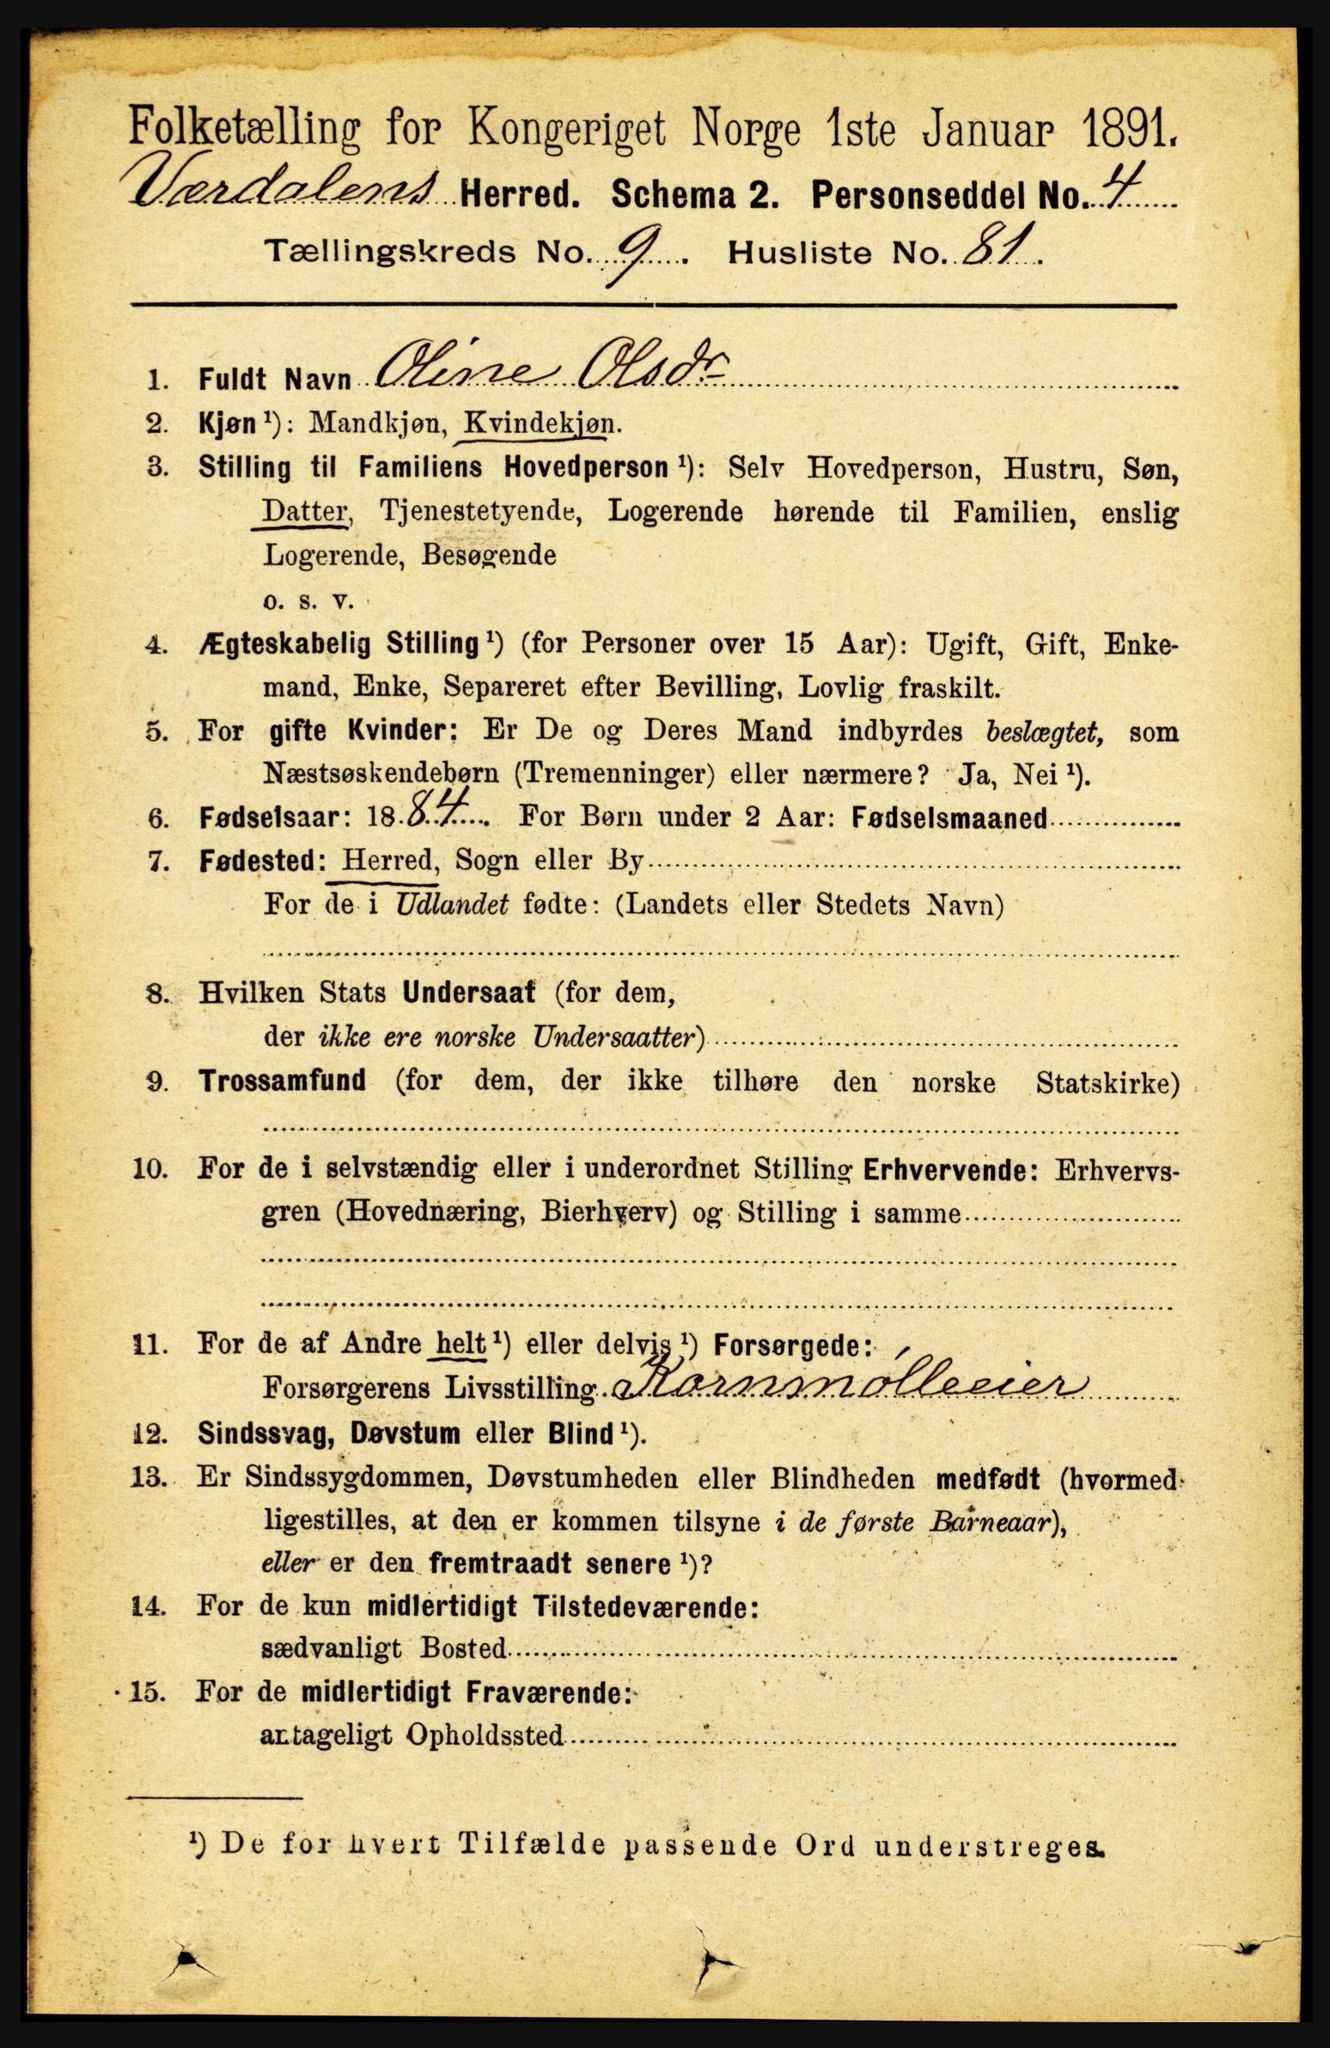 Folketælling for Kongeriget Norge 1ste Januar 1891.
Værdalens Herred. Schema 2. Personseddel No. 4
Tællingskreds No. 9. Husliste No. 81.
1. Fuldt Navn Oline Olsdr
2. Kjøn ¹): Mandkjøn, Kvindekjøn.
3. Stilling til Familiens Hovedperson ¹): Selv Hovedperson, Hustru, Søn,
Datter, Tjenestetyende, Logerende hørende til Familien, enslig
Logerende, Besøgende
o. s. v.
4. Ægteskabelig Stilling ¹) (for Personer over 15 Aar): Ugift, Gift, Enke-
mand, Enke, Separeret efter Bevilling, Lovlig fraskilt.
5. For gifte Kvinder: Er De og Deres Mand indbyrdes beslægtet, som
Næstsøskendebørn (Tremenninger) eller nærmere? Ja, Nei ¹).
6. Fødselsaar: 1884. For Børn under 2 Aar: Fødselsmaaned
7. Fødested: Herred, Sogn eller By
For de i Udlandet fødte: (Landets eller Stedets Navn)
8. Hvilken Stats Undersaat (for dem,
der ikke ere norske Undersaatter)
9. Trossamfund (for dem, der ikke tilhøre den norske Statskirke)
10. For de i selvstændig eller i underordnet Stilling Erhvervende: Erhvervs-
gren (Hovednæring, Bierhverv) og Stilling i samme
11. For de af Andre helt ¹) eller delvis ¹) Forsørgede:
Forsørgerens Livsstilling. Kornmølleeier
12. Sindssvag, Døvstum eller Blind ¹).
13. Er Sindssygdommen, Døvstumheden eller Blindheden medfødt (hvormed
ligestilles, at den er kommen tilsyne i de første Barneaar),
eller er den fremtraadt senere ¹)?
14. For de kun midlertidigt Tilstedeværende:
sædvanligt Bosted
15. For de midlertidigt Fraværende:
antageligt Opholdssted
¹) De for hvert Tilfælde passende Ord understreges.